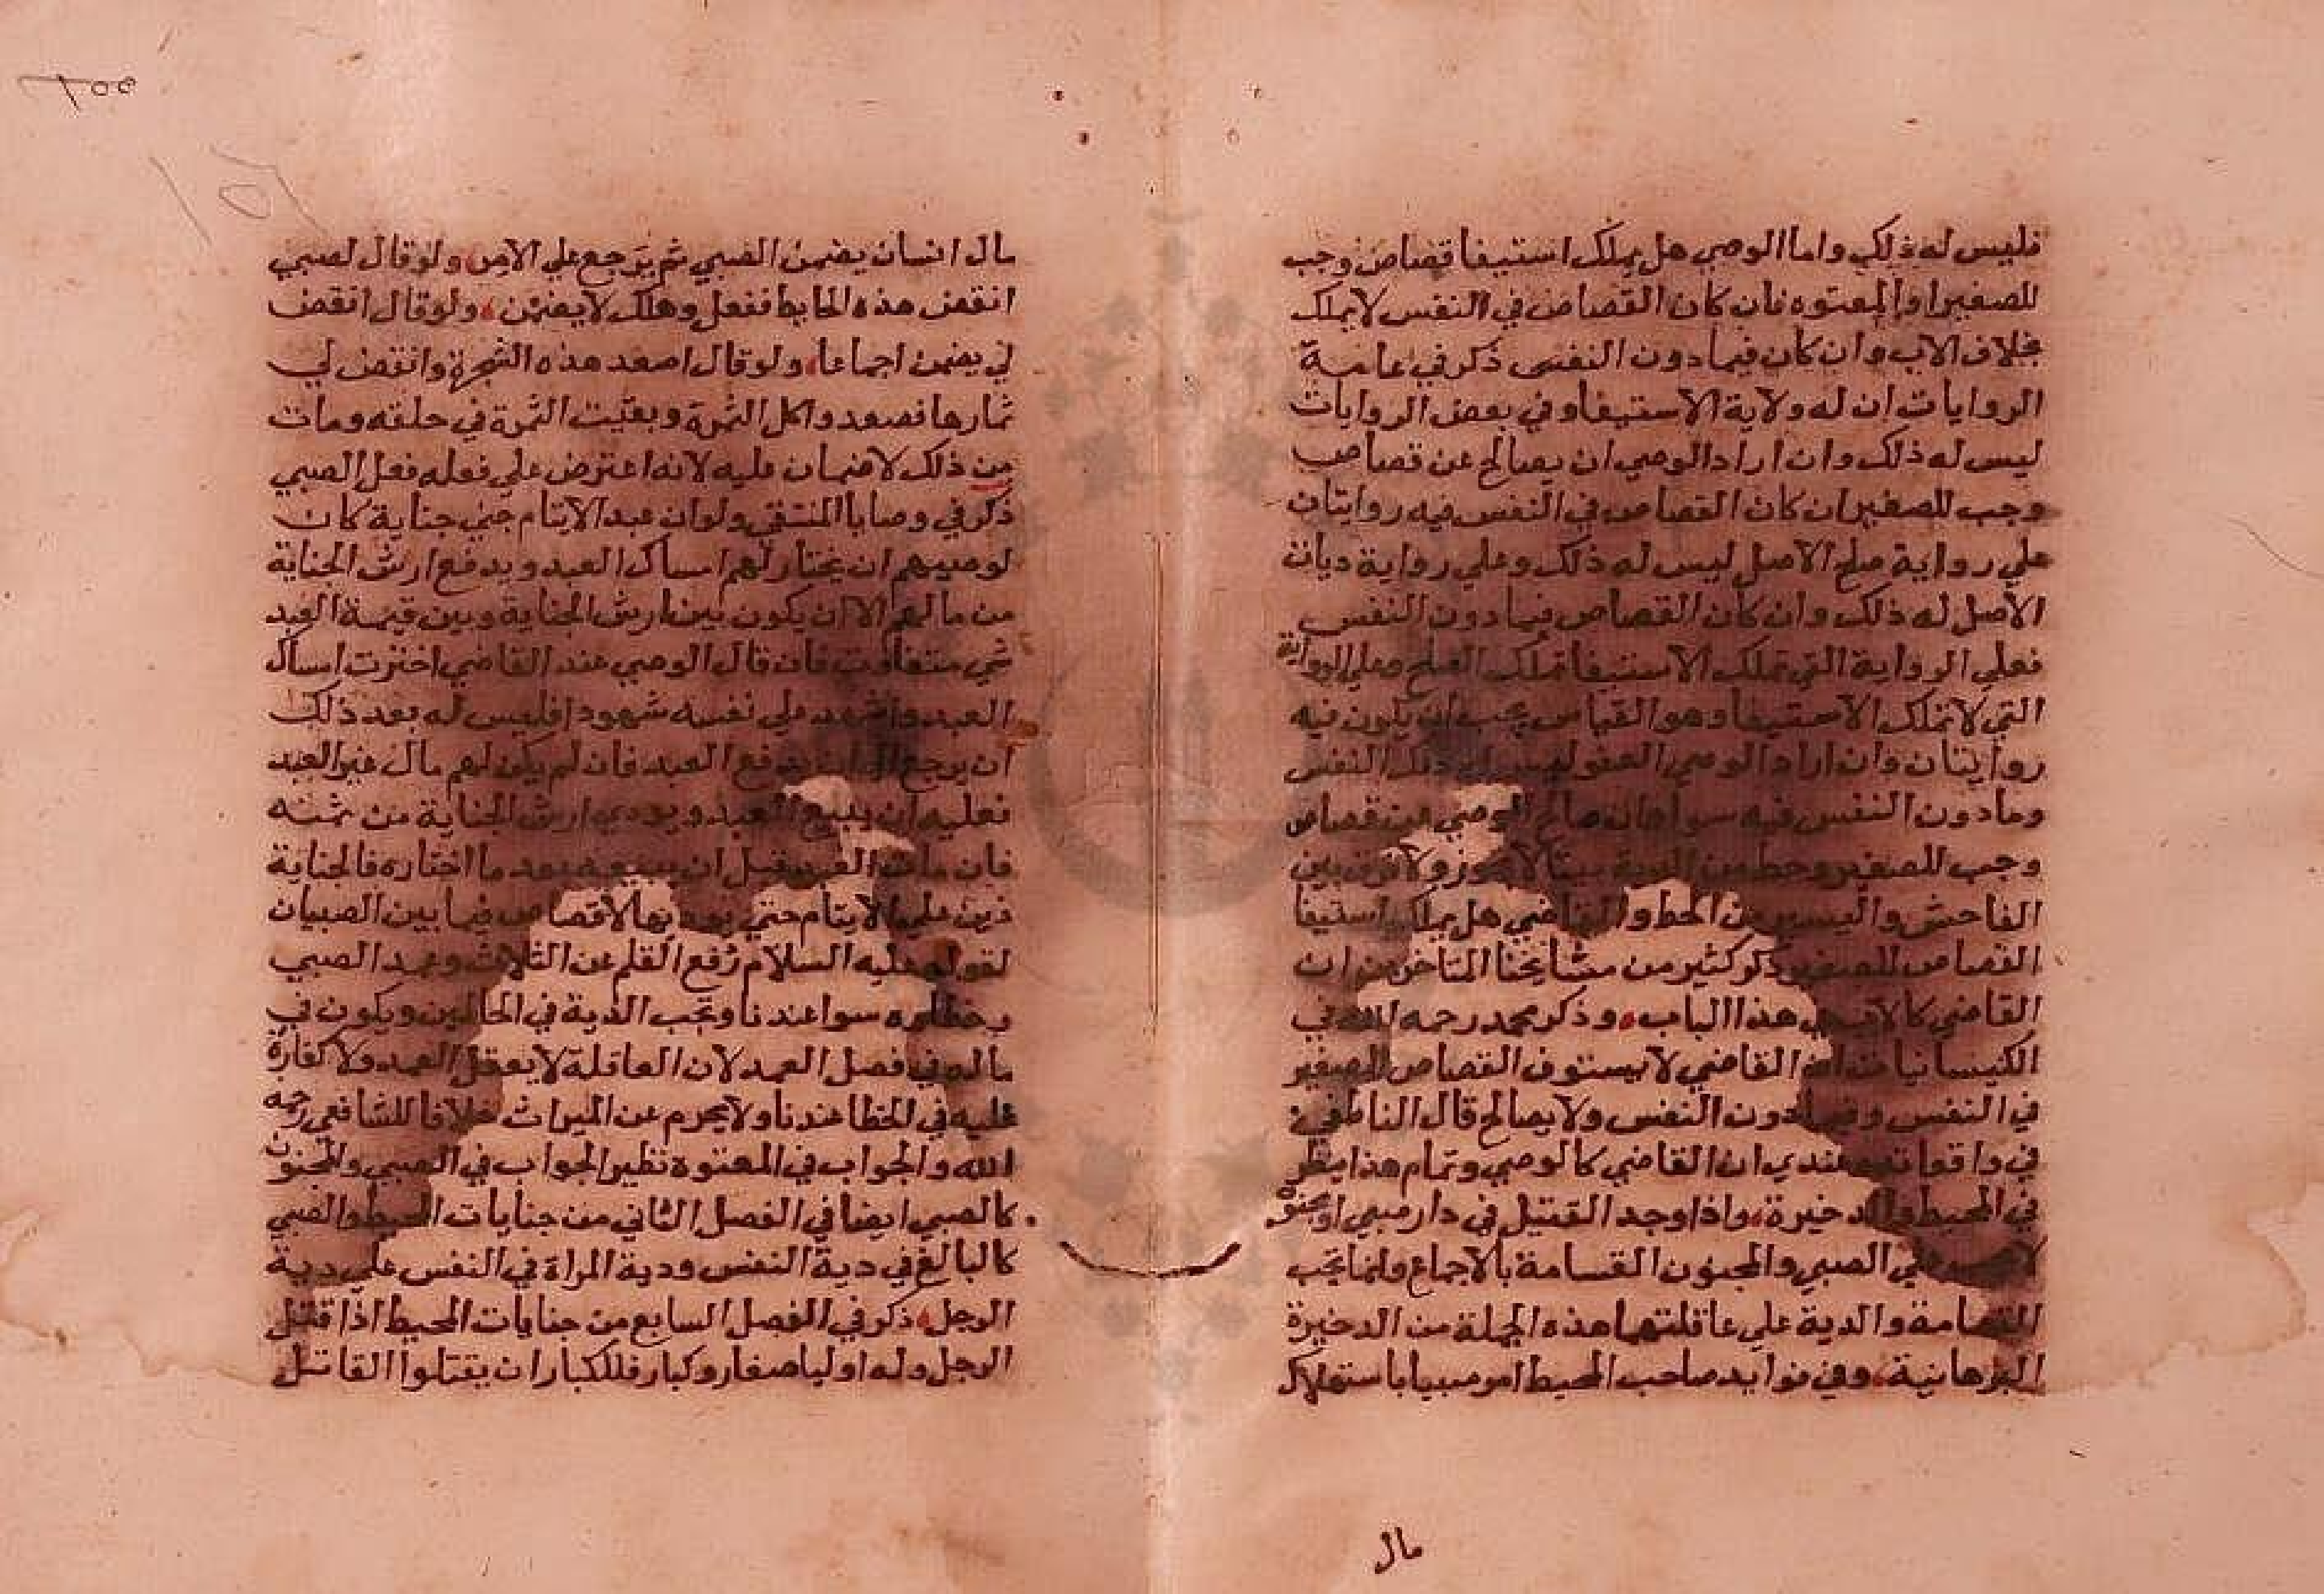 فليس له ذلك واما الوصي هل يملك استيفا قصاص وجب
للصغير او المعتوه فان كان القصاص في النفس لا يملك
بخلاف الاب وان كان فيما دون النفس ذكر في عامة
الروايات ان له ولاية الاستيفا وفي بعض الروايات
ليس له ذلك وان اراد الوصي ان يصالح عن قصاص
وجب للصغير ان كان القصاص في النفس فيه روايتان
علي رواية صلح الاصل ليس له ذلك وعلي رواية ديات
الاصل له ذلك وان كان القصاص فيما دون النفس
فعلي الرواية التي تملك الاستيفا تملك الصلح وعلي الرواية
التي لا تملك الاستيفا وهو القياس يجب ان يكون فيه
روايتان وان اراد الوصي العفو ليس له ذلك النفس
وما دون النفس فيه سوا فان صالح الوصي عن قصاص
وجب للصغير وحط من الدية شيئا لا يجوز ولا فرق بين
الفاحش واليسير من الحط والقاضي هل يملك استيفا
القصاص للصغير ذكر كثير من مشايخنا المتاخرين ان
القاضي كالاب في هذا الباب وذكر محمد رحمه الله في
الكيسانيات ان القاضي لا يستوف القصاص للصغير
في النفس وفيما دون النفس ولا يصالح قال الناطفي
في واقعاته وعندي ان القاضي كالوصي وتمام هذا ينظر
في المحيط والدخيرة واذا وجد القتيل في دار صبي او مجنون
لا علي الصبي والمجنون القسامة بالاجماع وانما تجب
القسامة والدية علي عاقلتهما هذه الجملة من الدخيرة
البرهانية وفي فوايد صاحب المحيط امر صبيا باستهلاك
مال
٢٥٥
مال انسان يضمن الصبي ثم يرجع علي الامر ولو قال لصبي
انقض هذه الحايط ففعل وهلك لا يضمن ولو قال انقض
لي يضمن اجماعا ولو قال اصعد هذه الشجرة وانتقض لي
ثمارها فصعد واكل الثمرة وبقيت الثمرة في حلقه ومات
من ذلك لا ضمان عليه لانه اعترض علي فعله فعل الصبي
ذكر في وصايا المنتقي ولو ان عبد الايتام جني جناية كان
لوصيهم ان يختار لهم امساك العبد ويدفع ارش الجناية
من مالهم الا ان يكون بين ارش الجناية وبين قيمة العبد
شي متفاوت فان قال الوصي عند القاضي اخترت امساك
العبد واشهد علي نفسه شهودا فليس له بعد ذلك
ان يرجع الي ان يدفع العبد فان لم يكن لهم مال غير العبد
فعليه ان يبيع العبد ويودي ارش الجناية من ثمنه
فان مات العبد قبل ان يبيعه بعد ما اختاره فالجناية
دين علي الايتام حتي يودوها لا قصاص فيما بين الصبيان
لقوله عليه السلام رفع القلم عن الثلاث وعمد الصبي
وخطاوه سوا عندنا وتجب الدية في الحالين ويكون في
ماله في فصل العمد لان العاقلة لا يعقل العمد ولا كفارة
عليه في الخطا عندنا ولا يحرم عن الميراث خلافا للشافعي رحمه
الله والجواب في المعتوه نظير الجواب في الصبي والمجنون
كالصبي ايضا في الفصل الثاني من جنايات المحيط والصبي
كالبالغ في دية النفس ودية المراة في النفس علي دية
الرجل ذكر في الفصل السابع من جنايات المحيط اذا قتل
الرجل وله اوليا صغار وكبار فللكبار ان يقتلوا القاتل